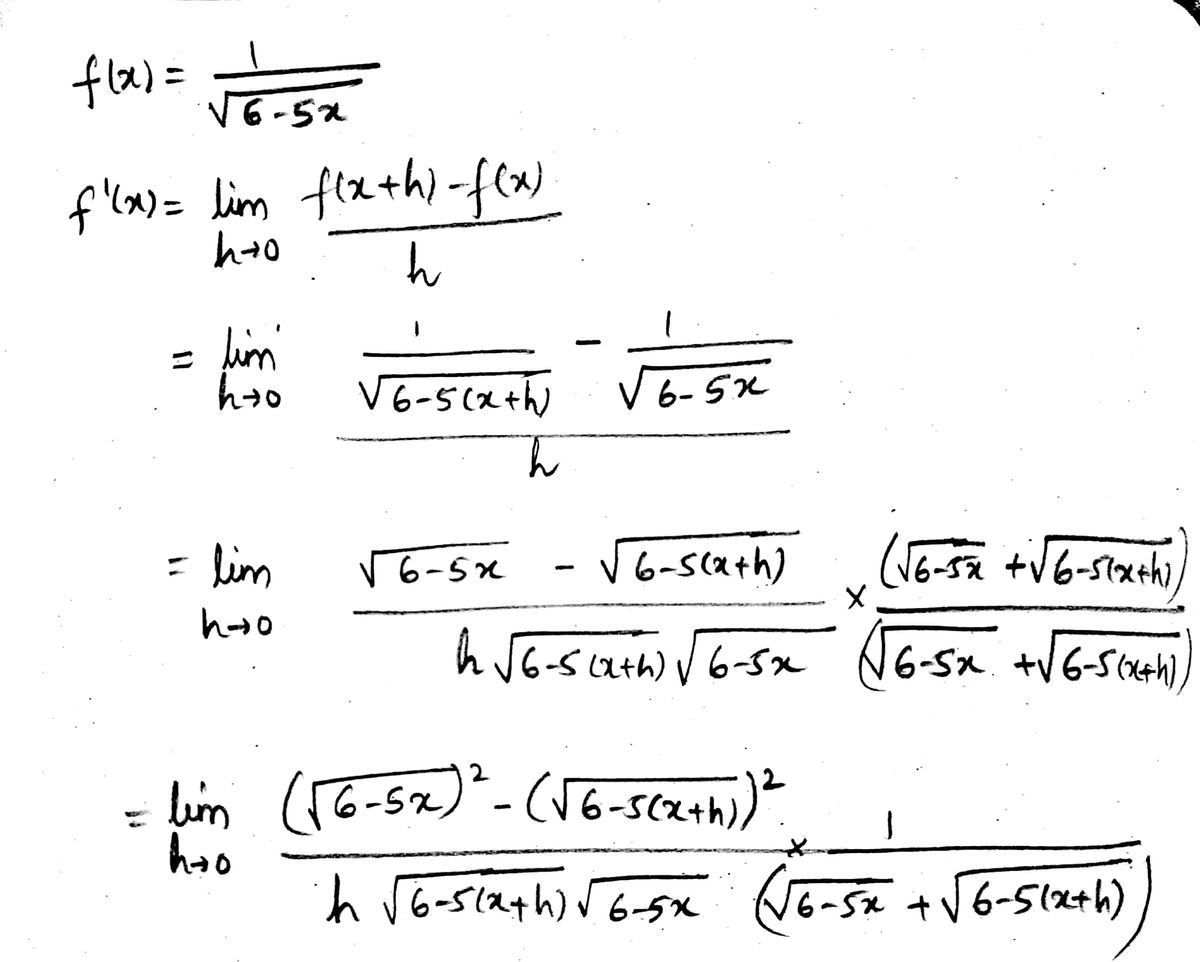 f(x) = 1 / √(6-5x)
f'(x) = lim h→0 (f(x+h) - f(x)) / h
= lim h→0 (1 / √(6-5(x+h)) - 1 / √(6-5x)) / h
= lim h→0 (√(6-5x) - √(6-5(x+h))) / (h √(6-5(x+h)) √(6-5x)) × (√(6-5x) + √(6-5(x+h))) / (√(6-5x) + √(6-5(x+h)))
= lim h→0 ((√(6-5x))² - (√(6-5(x+h)))²) / (h √(6-5(x+h)) √(6-5x)) × 1 / (√(6-5x) + √(6-5(x+h)))